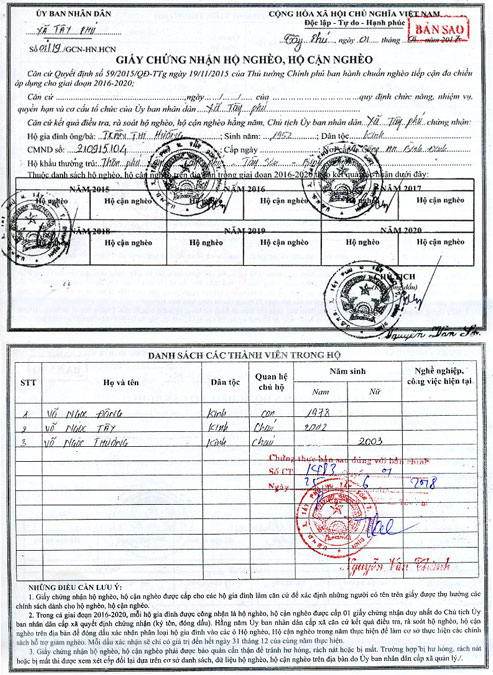 ỦY BAN NHÂN DÂN
XÃ TÂY PHÚ
CỘNG HÒA XÃ HỘI CHỦ NGHĨA VIỆT NAM
Độc lập - Tự do - Hạnh phúc
BẢN SAO
Số 01119 .GCN-HN.HCN
Tây Phú, ngày 01 tháng 01 năm 2017
GIẤY CHỨNG NHẬN HỘ NGHÈO, HỘ CẬN NGHÈO
Căn cứ Quyết định số 59/2015/QĐ-TTg ngày 19/11/2015 của Thủ tướng Chính phủ ban hành chuẩn nghèo tiếp cận đa chiều
áp dụng cho giai đoạn 2016-2020;
Căn cứ ........ ngày....../....../...... của ........ quy định chức năng, nhiệm vụ,
quyền hạn và cơ cấu tổ chức của Ủy ban nhân dân. xã Tây phú
Căn cứ kết quả điều tra, rà soát hộ nghèo, hộ cận nghèo hằng năm, Chủ tịch Ủy ban nhân dân. Xã Tây phú chứng nhận:
Hộ gia đình ông/bà: TRẦN THỊ HƯỜNG Sinh năm: 1952 Dân tộc Kinh
CMND số: 210915104 Cấp ngày Nơi cấp Công an Bình Định
Hộ khẩu thường trú: Thôn phú Tây Sơn
Thuộc danh sách hộ nghèo, hộ cận nghèo trên địa bàn trong giai đoạn 2016-2020 theo kết quả xác nhận dưới đây:
NĂM 2015 NĂM 2016 NĂM 2017
Hộ nghèo Hộ cận nghèo Hộ nghèo Hộ cận nghèo Hộ nghèo Hộ cận nghèo
NĂM 2018 NĂM 2019 NĂM 2020
Hộ nghèo Hộ cận nghèo Hộ nghèo Hộ cận nghèo Hộ nghèo Hộ cận nghèo
CHỦ TỊCH
Nguyễn Văn
DANH SÁCH CÁC THÀNH VIÊN TRONG HỘ
STT Họ và tên Dân tộc Quan hệ chủ hộ Năm sinh Nghề nghiệp, công việc hiện tại
Nam Nữ
1 VÕ NGỌC ĐÔNG Kinh con 1978
2 VÕ NGỌC TÂY Kinh Cháu 2002
3 VÕ NGỌC THƯỜNG Kinh cháu 2003
Chứng thực bản sao đúng với bản chính
Số CT 1483 01
Ngày 25 6 2018
Nguyễn Văn Thành
NHỮNG ĐIỀU CẦN LƯU Ý:
1. Giấy chứng nhận hộ nghèo, hộ cận nghèo được cấp cho các hộ gia đình làm căn cứ để xác định những người có tên trên giấy được thụ hưởng các
chính sách dành cho hộ nghèo, hộ cận nghèo.
2. Trong cả giai đoạn 2016-2020, mỗi hộ gia đình được công nhận là hộ nghèo, hộ cận nghèo được cấp 01 giấy chứng nhận duy nhất do Chủ tịch Ủy
ban nhân dân cấp xã quyết định chứng nhận (ký tên, đóng dấu). Hằng năm Ủy ban nhân dân cấp xã căn cứ kết quả điều tra, rà soát hộ nghèo, hộ cận
nghèo trên địa bàn để đóng dấu xác nhận phân loại hộ gia đình vào các ô Hộ nghèo, Hộ cận nghèo trong năm thực hiện để làm cơ sở thực hiện các chính sách
hỗ trợ giảm nghèo. Mỗi dấu xác nhận sẽ chỉ có giá trị đến hết ngày 31 tháng 12 của cùng năm thực hiện.
3. Giấy chứng nhận hộ nghèo, hộ cận nghèo phải được bảo quản cẩn thận để tránh hư hỏng, rách nát hoặc bị mất. Trường hợp bị hư hỏng, rách nát
hoặc bị mất thì được xem xét cấp đổi lại dựa trên cơ sở danh sách, dữ liệu hộ nghèo, hộ cận nghèo trên địa bàn do Ủy ban nhân dân cấp xã quản lý./.